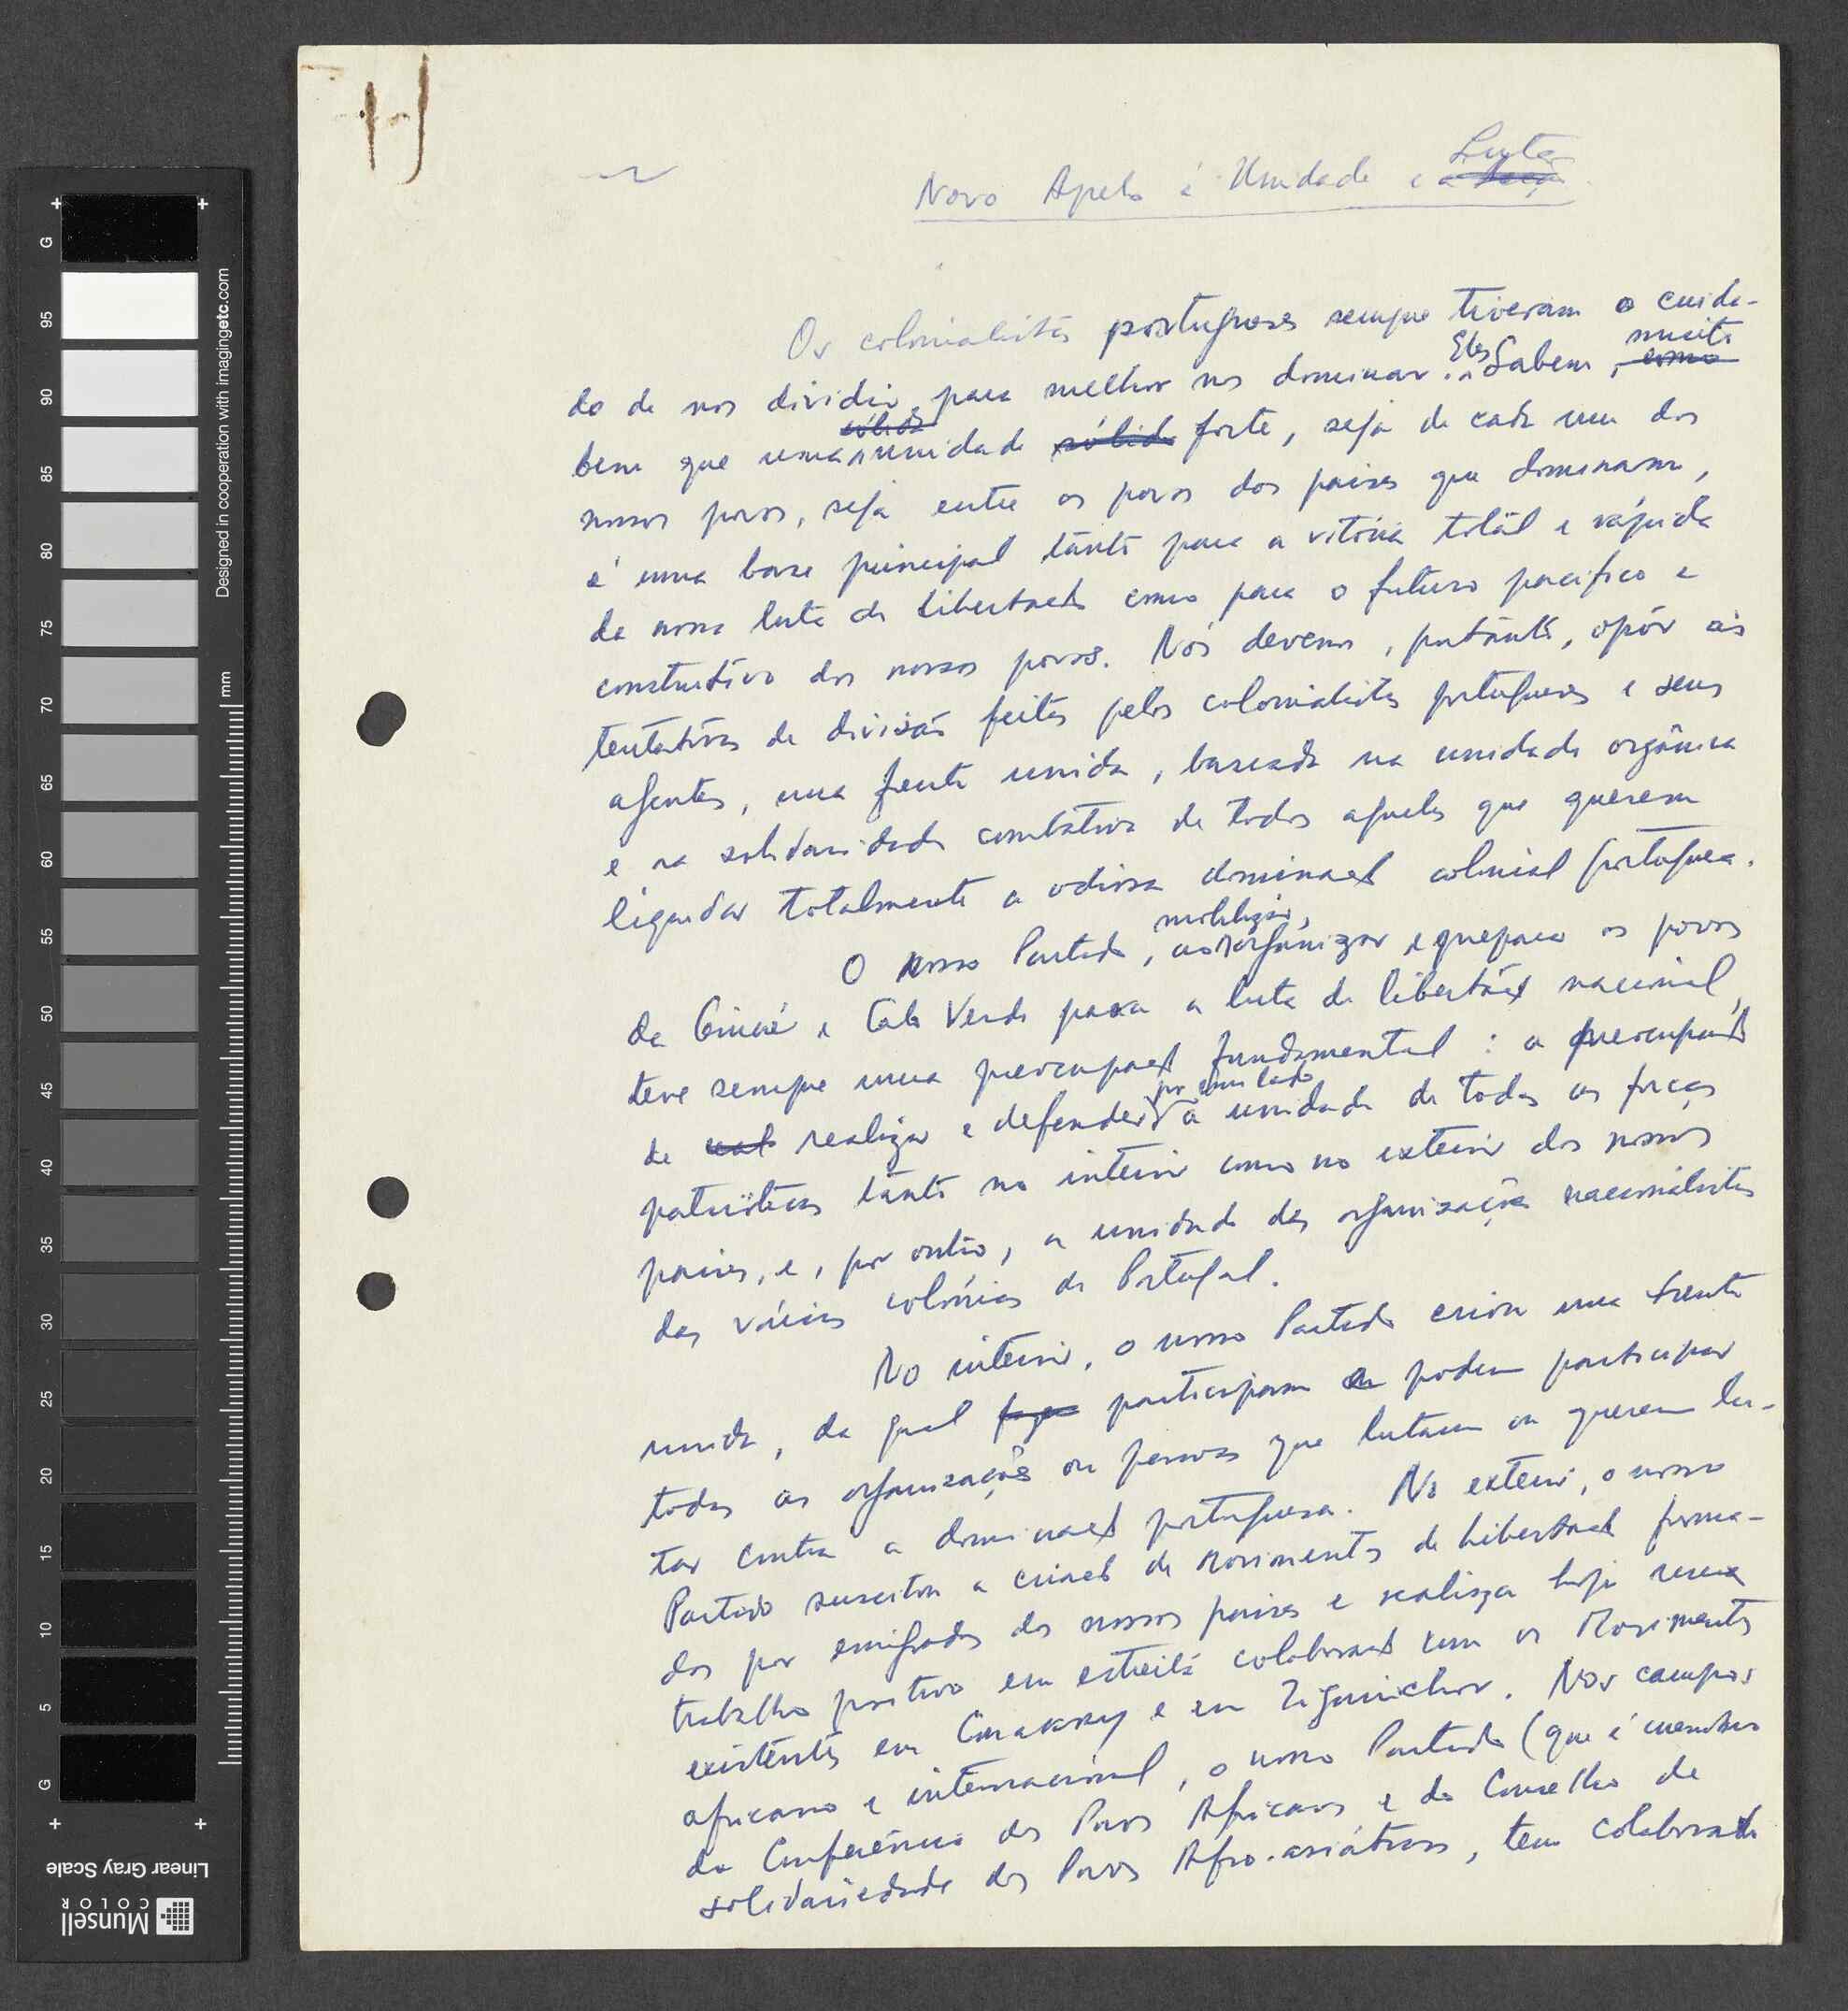 Novo Apelo à Unidade e à Luta
Os colonialistas portugueses sempre tiveram o cuida-
do de nos dividir, para melhor nos dominar. Eles Sabem, muito
bem que uma unidade forte, seja de cada um dos
nossos povos, seja entre os povos dos países que dominam,
é uma base principal tanto para a vitória total e rápida
da nossa luta de libertação como para o futuro pacífico e
construtivo dos nossos povos. Nós devemos, portanto, opôr às
tentativas de divisão feitas pelos colonialistas portugueses e seus
agentes, uma frente unida, baseada na unidade orgânica
e na solidariedade combativa de todos aqueles que querem
liquidar totalmente a odiosa dominação colonial portuguesa.
O nosso Partido, ao mobilizar, organizar e preparar os povos
da Guiné e Cabo Verde para a luta de libertação nacional,
teve sempre uma preocupação fundamental: a preocupação
de realizar e defender por um lado a unidade de todas as forças
patrióticas tanto no interior como no exterior dos nossos
países, e, por outro, a unidade das organizações nacionalistas
das várias colónias de Portugal.
No interior, o nosso Partido criou uma frente
unida, da qual participam ou podem participar
todas as organizações ou pessoas que lutam ou querem lu-
tar contra a dominação portuguesa. No exterior, o nosso
Partido suscitou a criação de movimentos de libertação forma-
dos por emigrados dos nossos países e realiza hoje um
trabalho positivo em estreita colaboração com os Movimentos
existentes em Conakry e em Ziguinchor. Nos campos
africano e internacional, o nosso Partido (que é membro
da Conferência dos Povos Africanos e do Conselho de
solidariedade dos Povos Afro-asiáticos, tem colaborado
Designed in cooperation with imagingetc.com
mm
G 95 90 85 80 75 70 65 60 55 50 45 40 35 30 25 20 15 10 5 G
Linear Gray Scale
Munsell
COLOR